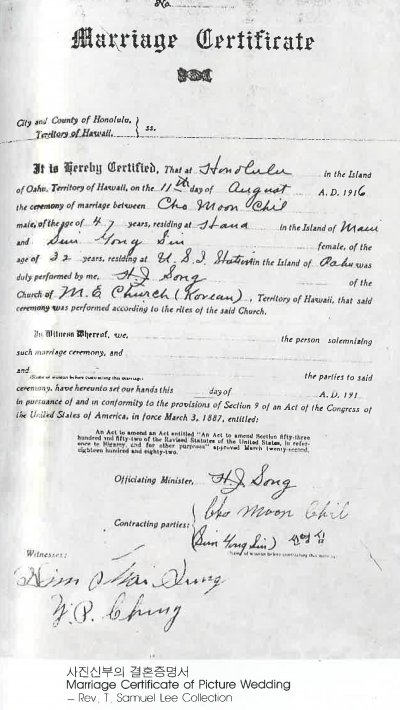 No.
Marriage Certificate
City and County of Honolulu,
Territory of Hawaii, } ss.
It is Hereby Certified, That at Honolulu in the Island
of Oahu, Territory of Hawaii, on the 11th day of August A. D. 1916
the ceremony of marriage between Cho Moon Chil
male, of the age of 47 years, residing at Hana in the Island of Maui
and Sin Yong Sin female, of the
age of 32 years, residing at U.S.I. Station in the Island of Oahu was
duly performed by me, H. J. Song of the
Church of M. E. Church (Korean), Territory of Hawaii, that said
ceremony was performed according to the rites of the said Church.
In Witness Whereof, we, the person solemnizing
such marriage ceremony, and
and the parties to said
(Name of woman before contracting this marriage)
ceremony, have hereunto set our hands this day of A. D. 191
in pursuance of and in conformity to the provisions of Section 9 of an Act of the Congress of
the United States of America, in force March 3, 1887, entitled:
An Act to amend an Act entitled "An Act to amend Section fifty-three
hundred and fifty-two of the Revised Statutes of the United States, in refer-
ence to Bigamy, and for other purposes" approved March twenty-second,
eighteen hundred and eighty-two.
Officiating Minister, H. J. Song
Contracting parties: { Cho Moon Chil
(Sin Yong Sin) 신영심
(Name of woman before contracting this marriage)
Witnesses:
Y. P. Chung
사진신부의 결혼증명서
Marriage Certificate of Picture Wedding
– Rev. T. Samuel Lee Collection